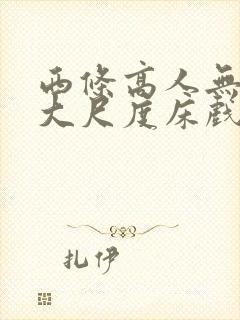 西條高人無
大尺度床戲
扎伊